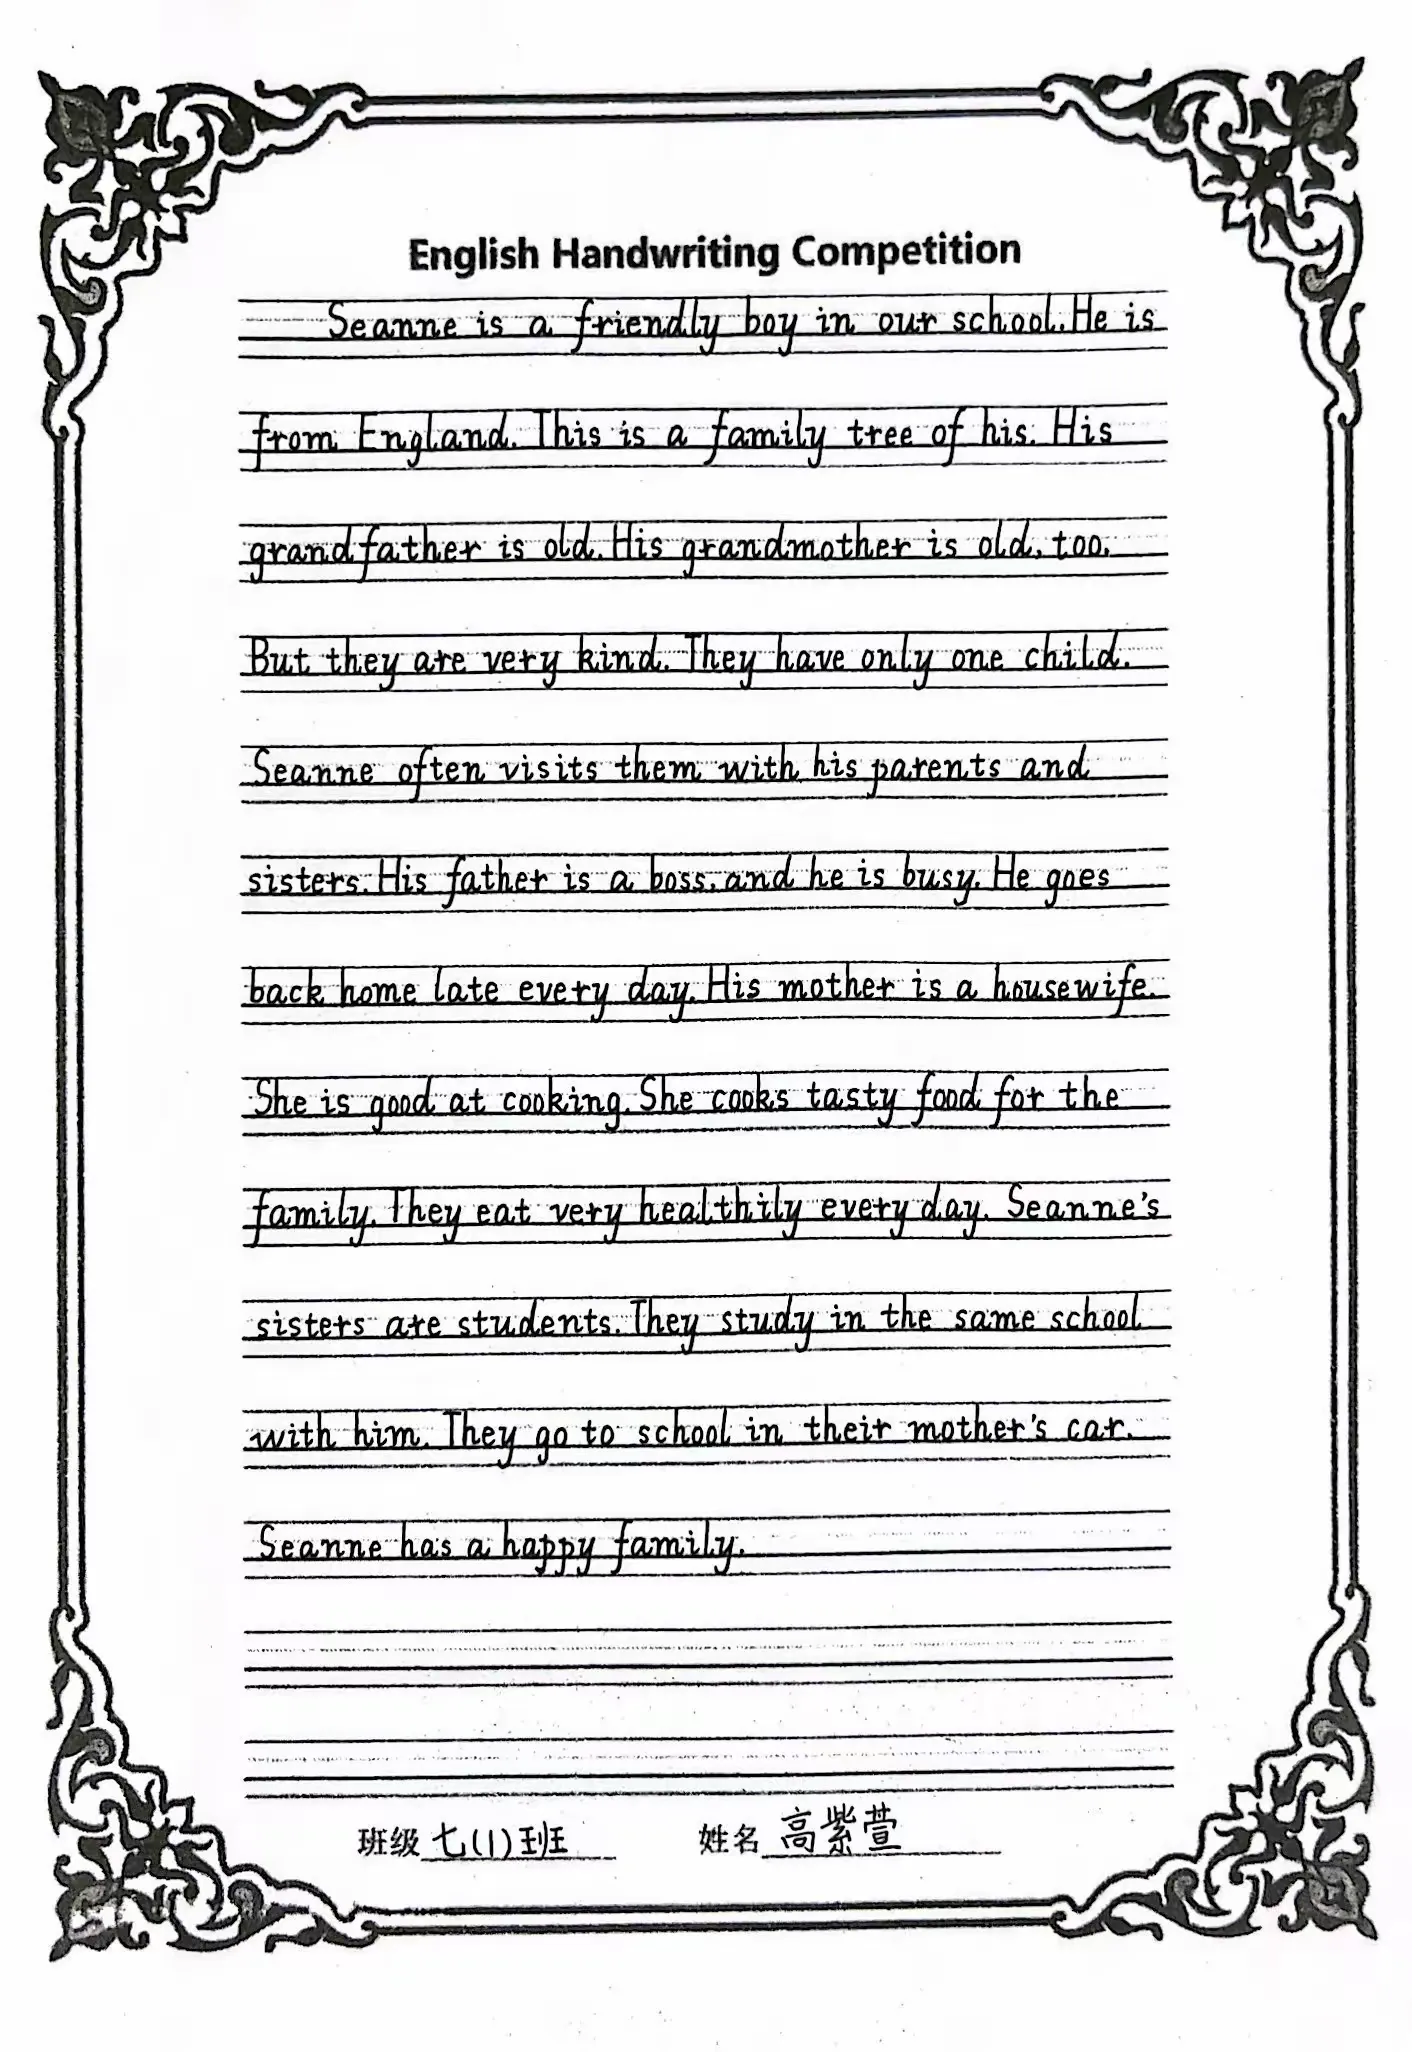 English Handwriting Competition
Seanne is a friendly boy in our school. He is
from England. This is a family tree of his. His
grandfather is old. His grandmother is old, too.
But they are very kind. They have only one child.
Seanne often visits them with his parents and
sisters. His father is a boss, and he is busy. He goes
back home late every day. His mother is a housewife.
She is good at cooking. She cooks tasty food for the
family. They eat very healthily every day. Seanne's
sisters are students. They study in the same school
with him. They go to school in their mother's car.
Seanne has a happy family.
班级 七(1)班 姓名 高紫萱